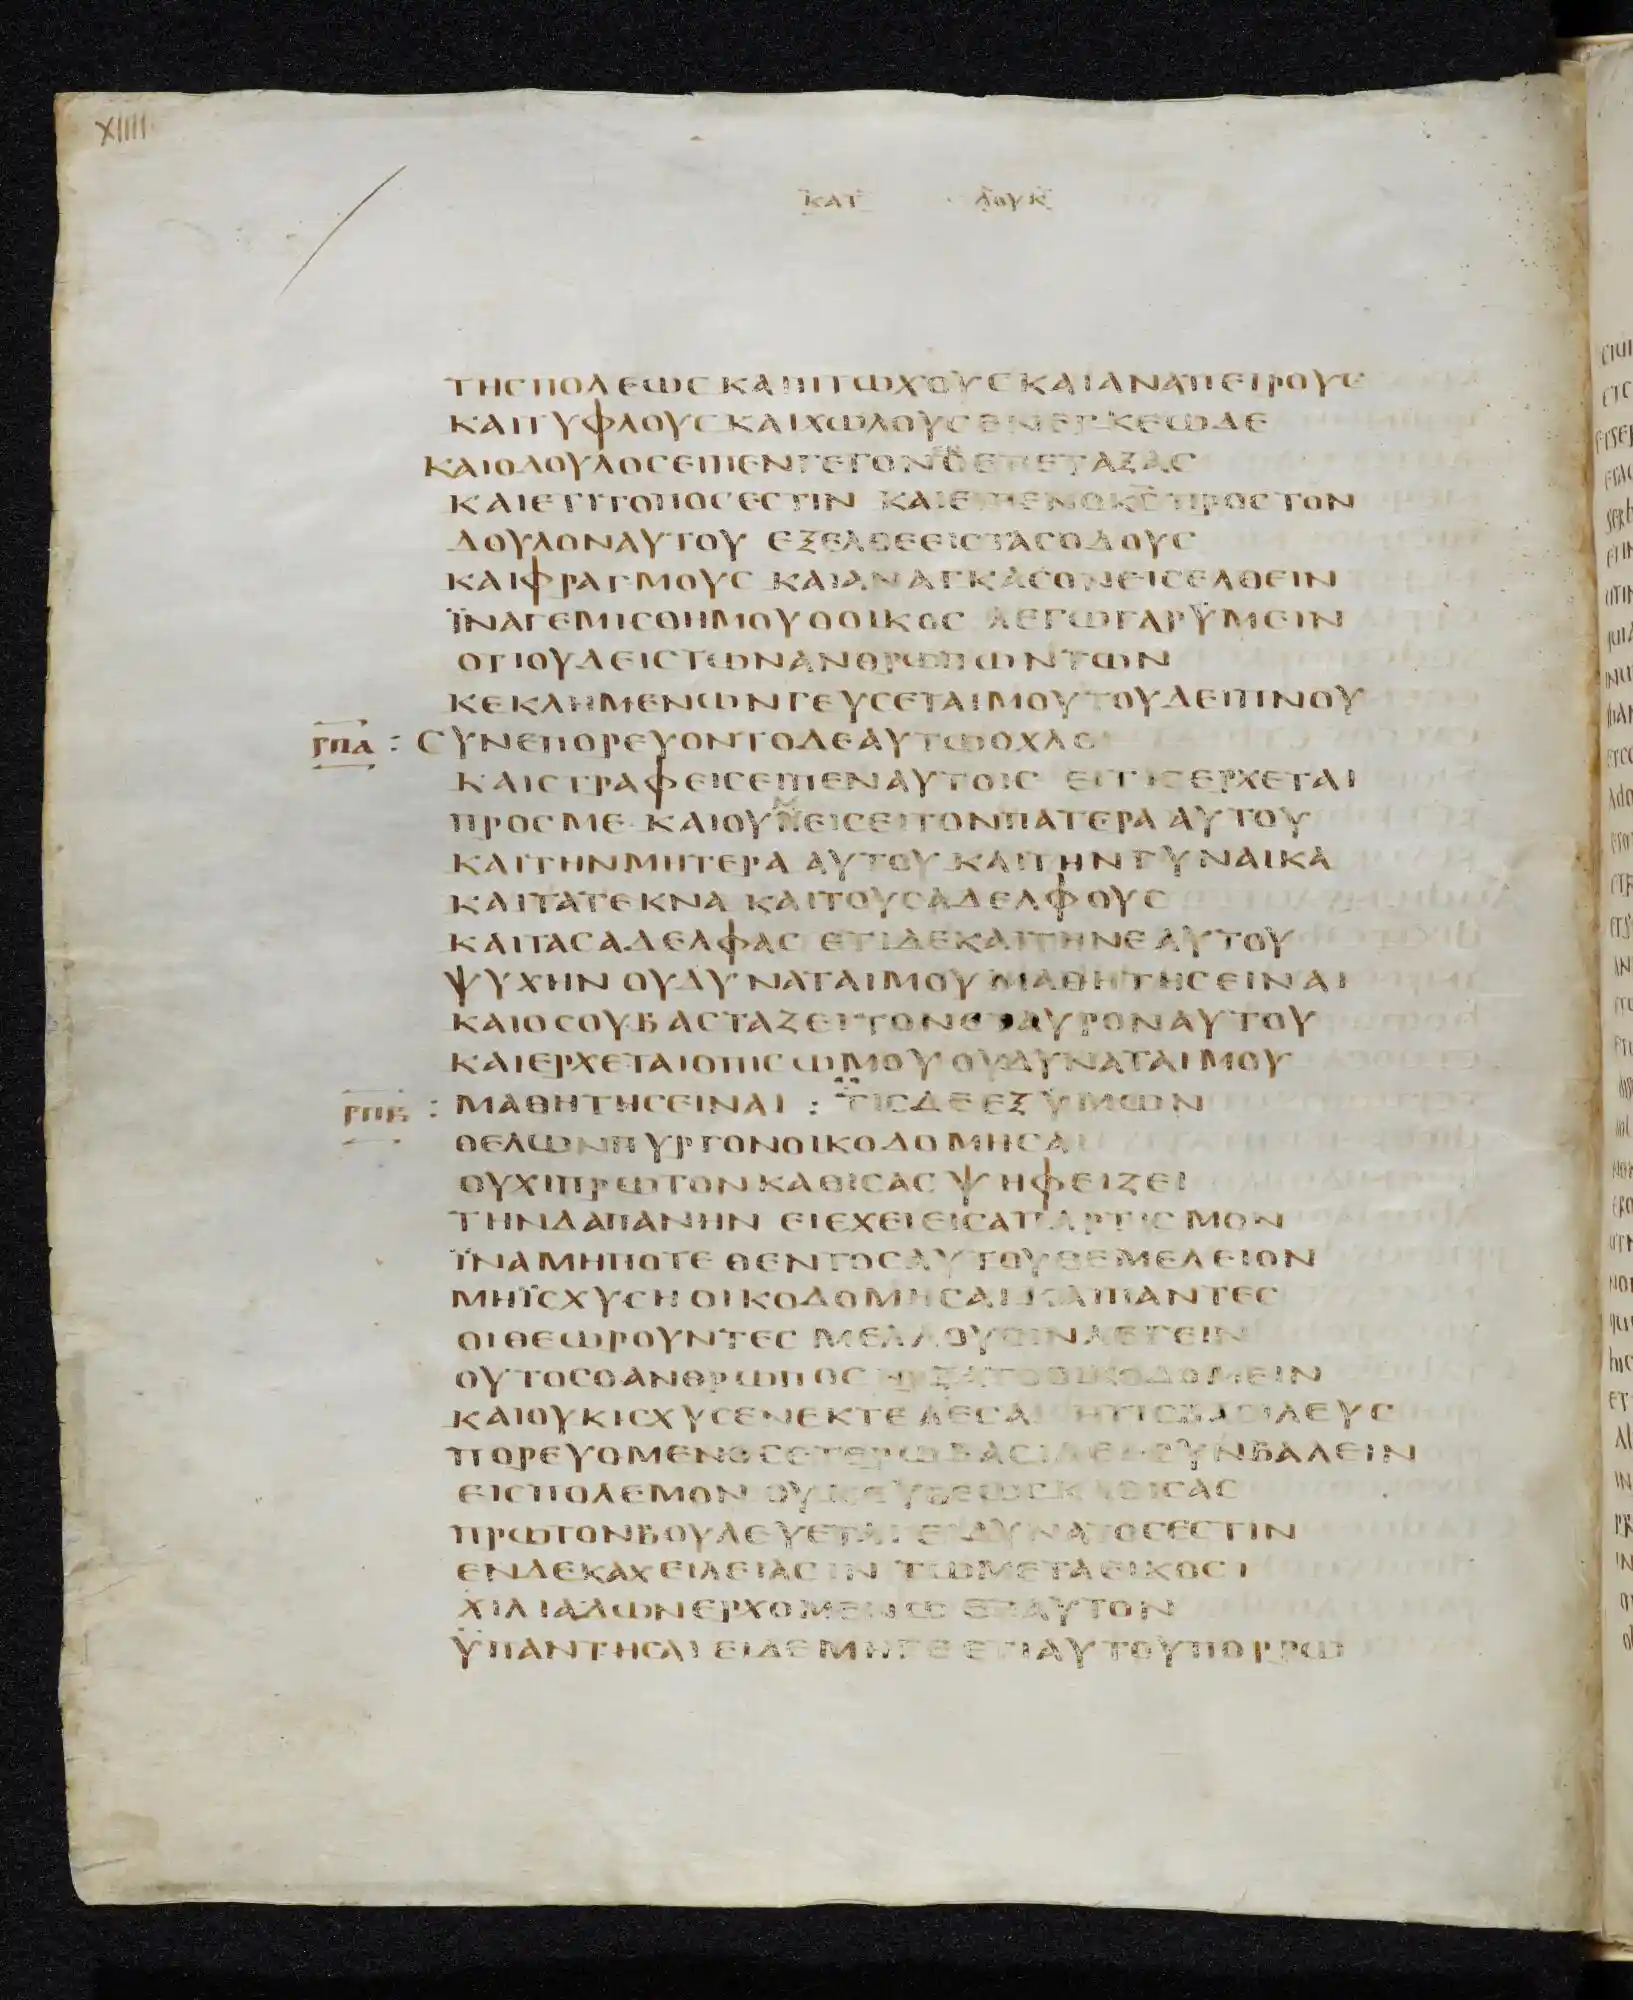 XIIII
ΚΑΤ ΛΟΥΚ
ΤΗϹΠΟΛΕΩϹΚΑΙΠΤΩΧΟΥϹΚΑΙΑΝΑΠΕΙΡΟΥϹ
ΚΑΙΤΥΦΛΟΥϹΚΑΙΧΩΛΟΥϹΕΝΕΓΚΕΩΔΕ
ΚΑΙΟΔΟΥΛΟϹΕΙΠΕΝΓΕΓΟΝΕΝΟΕΠΕΤΑΞΑϹ
ΚΑΙΕΤΙΤΟΠΟϹΕϹΤΙΝ ΚΑΙΕΙΠΕΝΟΚϹΠΡΟϹΤΟΝ
ΔΟΥΛΟΝΑΥΤΟΥ ΕΞΕΛΘΕΕΙϹΤΑϹΟΔΟΥϹ
ΚΑΙΦΡΑΓΜΟΥϹ ΚΑΙΑΝΑΓΚΑϹΟΝΕΙϹΕΛΘΕΙΝ
ΪΝΑΓΕΜΙϹΘΗΜΟΥΟΟΙΚΟϹ ΛΕΓΩΓΑΡΫΜΕΙΝ
ΟΤΙΟΥΔΕΙϹΤΩΝΑΝΘΡΩΠΩΝΤΩΝ
ΚΕΚΛΗΜΕΝΩΝΓΕΥϹΕΤΑΙΜΟΥΤΟΥΔΕΙΠΝΟΥ
ΡΠΑ : ϹΥΝΕΠΟΡΕΥΟΝΤΟΔΕΑΥΤΩΟΧΛΟΙ
ΚΑΙϹΤΡΑΦΕΙϹΕΙΠΕΝΑΥΤΟΙϹ ΕΙΤΙϹΕΡΧΕΤΑΙ
ΠΡΟϹΜΕ ΚΑΙΟΥΜΕΙϹΕΙΤΟΝΠΑΤΕΡΑ ΑΥΤΟΥ
ΚΑΙΤΗΝΜΗΤΕΡΑ ΑΥΤΟΥ ΚΑΙΤΗΝΓΥΝΑΙΚΑ
ΚΑΙΤΑΤΕΚΝΑ ΚΑΙΤΟΥϹΑΔΕΛΦΟΥϹ
ΚΑΙΤΑϹΑΔΕΛΦΑϹ ΕΤΙΔΕΚΑΙΤΗΝΕΑΥΤΟΥ
ΨΥΧΗΝ ΟΥΔΥΝΑΤΑΙΜΟΥ ΜΑΘΗΤΗϹΕΙΝΑΙ
ΚΑΙΟϹΟΥΒΑϹΤΑΖΕΙΤΟΝϹΤΑΥΡΟΝΑΥΤΟΥ
ΚΑΙΕΡΧΕΤΑΙΟΠΙϹΩΜΟΥ ΟΥΔΥΝΑΤΑΙΜΟΥ
ΡΠΒ : ΜΑΘΗΤΗϹΕΙΝΑΙ : ΤΙϹΔΕΕΞΥΜΩΝ
ΘΕΛΩΝΠΥΡΓΟΝΟΙΚΟΔΟΜΗϹΑΙ
ΟΥΧΙΠΡΩΤΟΝΚΑΘΙϹΑϹΨΗΦΕΙΖΕΙ
ΤΗΝΔΑΠΑΝΗΝ ΕΙΕΧΕΙΕΙϹΑΠΑΡΤΙϹΜΟΝ
ΪΝΑΜΗΠΟΤΕ ΘΕΝΤΟϹΑΥΤΟΥΘΕΜΕΛΕΙΟΝ
ΜΗΪϹΧΥϹΗ ΟΙΚΟΔΟΜΗϹΑΙ ΚΑΙΠΑΝΤΕϹ
ΟΙΘΕΩΡΟΥΝΤΕϹ ΜΕΛΛΟΥϹΙΝΛΕΓΕΙΝ
ΟΥΤΟϹΟΑΝΘΡΩΠΟϹ ΗΡΞΑΤΟΟΙΚΟΔΟΜΕΙΝ
ΚΑΙΟΥΚΙϹΧΥϹΕΝΕΚΤΕΛΕϹΑΙ ΗΤΙϹΒΑϹΙΛΕΥϹ
ΠΟΡΕΥΟΜΕΝΟϹΕΤΕΡΩΒΑϹΙΛΕΙϹΥΝΒΑΛΕΙΝ
ΕΙϹΠΟΛΕΜΟΝ ΟΥΚΕΥΘΕΩϹΚΑΘΙϹΑϹ
ΠΡΩΤΟΝΒΟΥΛΕΥΕΤΑΙ ΕΙΔΥΝΑΤΟϹΕϹΤΙΝ
ΕΝΔΕΚΑΧΕΙΛΕΙΑϹΙΝ ΤΩΜΕΤΑΕΙΚΟϹΙ
ΧΙΛΙΑΔΩΝΕΡΧΟΜΕΝΩ ΕΠΑΥΤΟΝ
ΫΠΑΝΤΗϹΑΙ ΕΙΔΕΜΗΓΕ ΕΤΙΑΥΤΟΥΠΟΡΡΩ